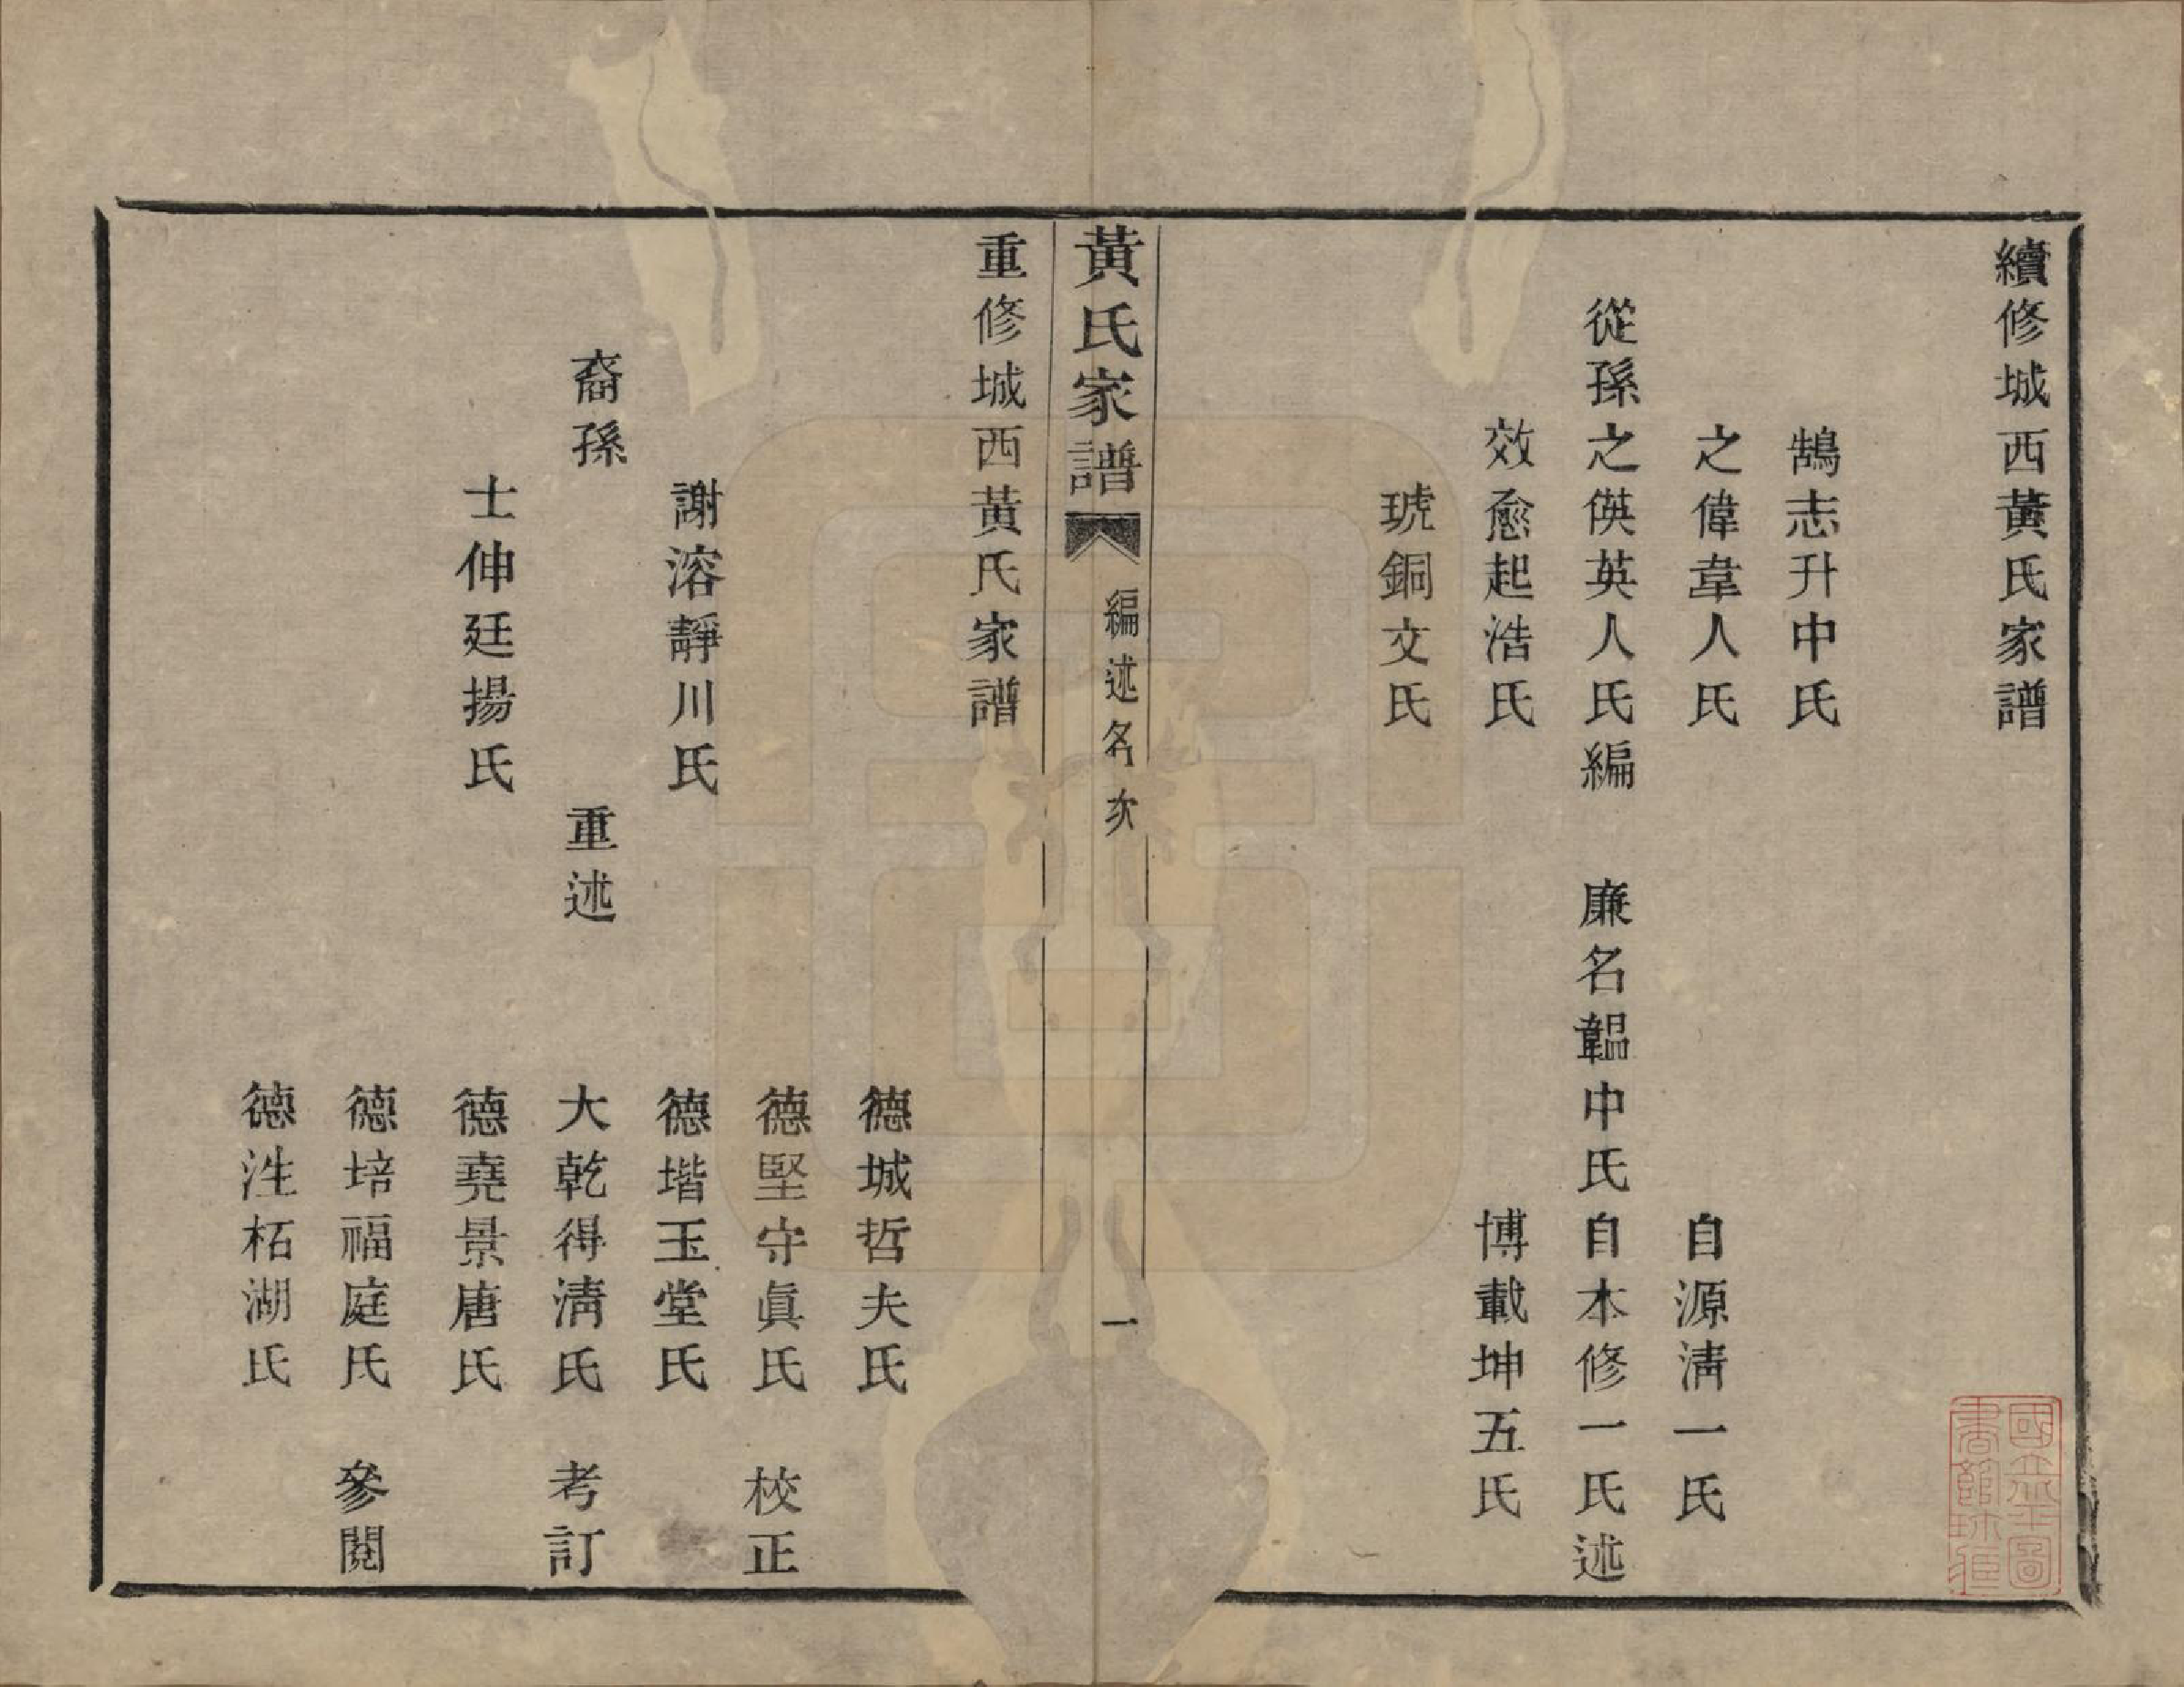 續修城西黃氏家譜
鵠志升中氏
之偉韋人氏
自源淸一氏
從孫之偀英人氏編
廉名韞中氏自本修一氏述
效愈起浩氏
博載坤五氏
琥銅文氏
黃氏家譜
編述名次
一
重修城西黃氏家譜
德城哲夫氏
德堅守眞氏
校正
謝溶靜川氏
德堦玉堂氏
裔孫
重述
大乾得淸氏
考訂
士伸廷揚氏
德堯景唐氏
德培福庭氏
參閱
德泩柘湖氏
國立北平圖書館珍藏